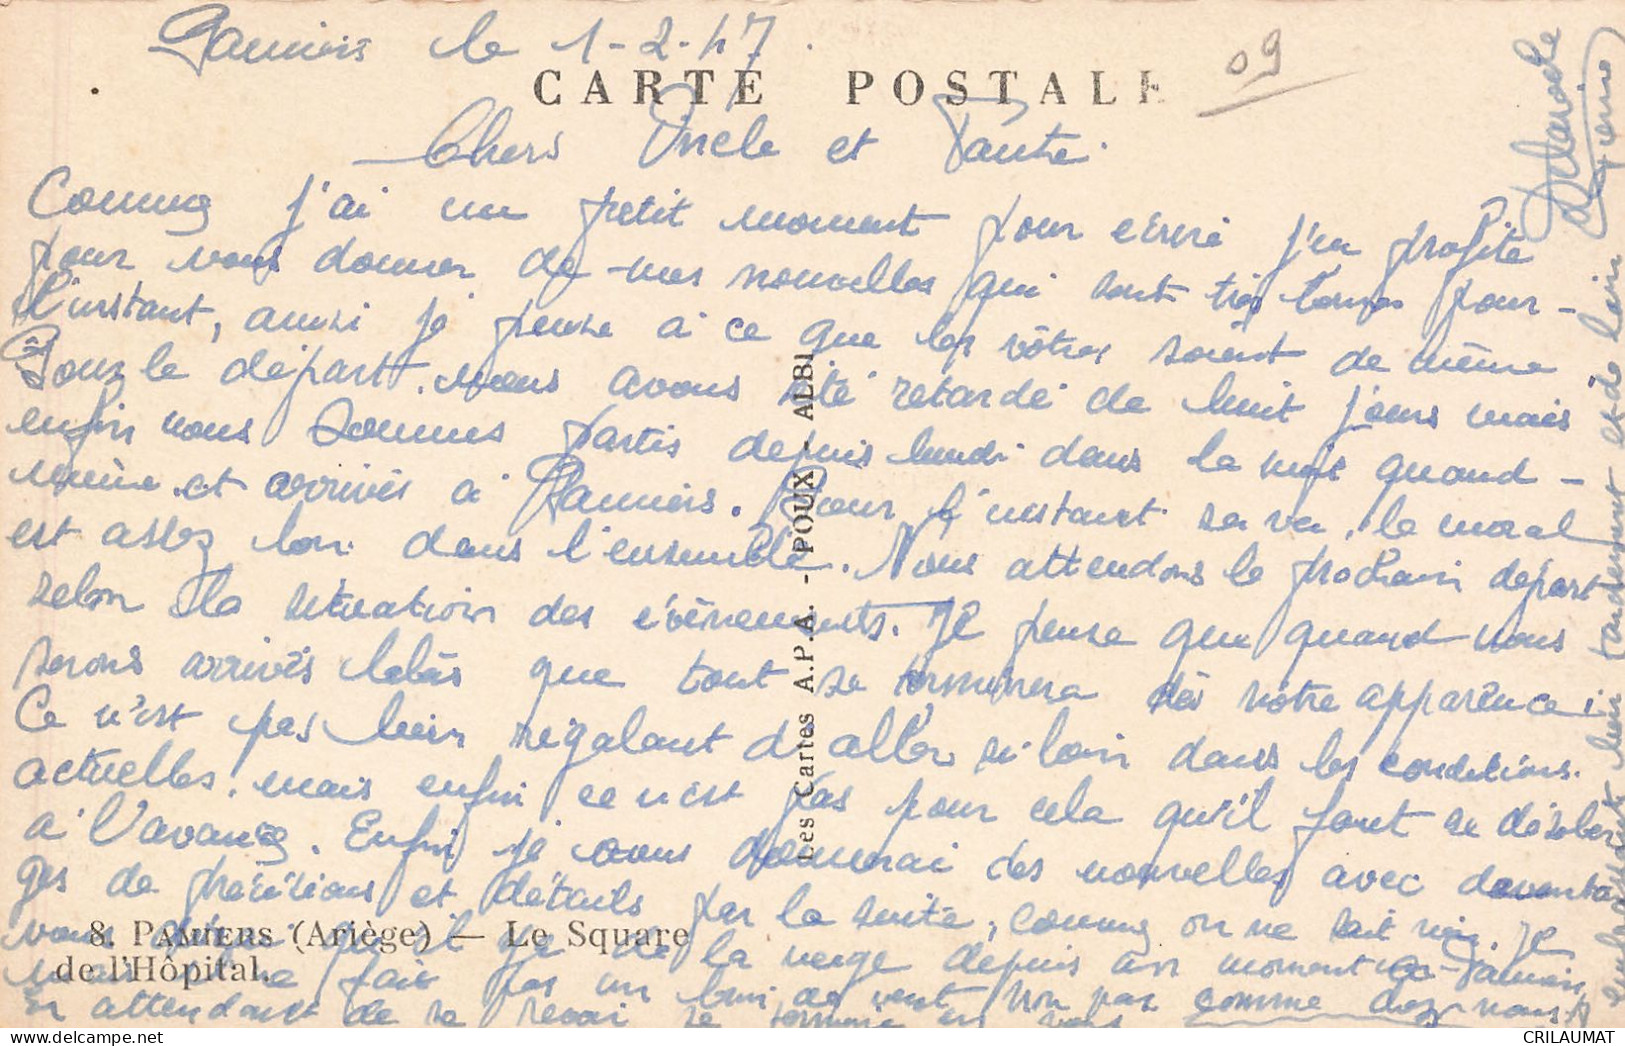 Pamiers le 1-2-47.
CARTE POSTALE
09
Chers Oncle et Tante.
Comme j'ai un petit moment pour écrire j'en profite
pour vous donner de mes nouvelles qui sont très bonnes pour-
l'instant, aussi je pense à ce que les vôtres soient de même
Pour le départ. nous avons été retardé de huit jours mais
enfin nous sommes partis depuis lundi dans la nuit quand-
même et arrivés à Pamiers. Pour l'instant sa va, le moral
est assez bon dans l'ensemble. Nous attendons le prochain départ
selon la situation des évènements. Je pense que quand nous
serons arrivés labàs que tout se terminera dès nôtre apparence
Ce n'est pas bien régalant d'aller si loin dans les conditions.
actuelles. mais enfin ce n'est pas pour cela qu'il faut se désoler
à l'avance. Enfin je vous donnerai des nouvelles avec davanta
ges de précisions et détails par la suite, comme on ne sait rien. Je
vous dirai qu'il de la neige depuis un moment à Pamiers,
mais il ne fait pas un brin de vent non pas comme chez nous.
En attendant de se revoir je termine en vous
embrassant bien tendrement et de loin
8. PAMIERS (Ariège) — Le Square
de l'Hôpital.
Les Cartes A.P.A. - POUX - ALBI
CRILAUMAT